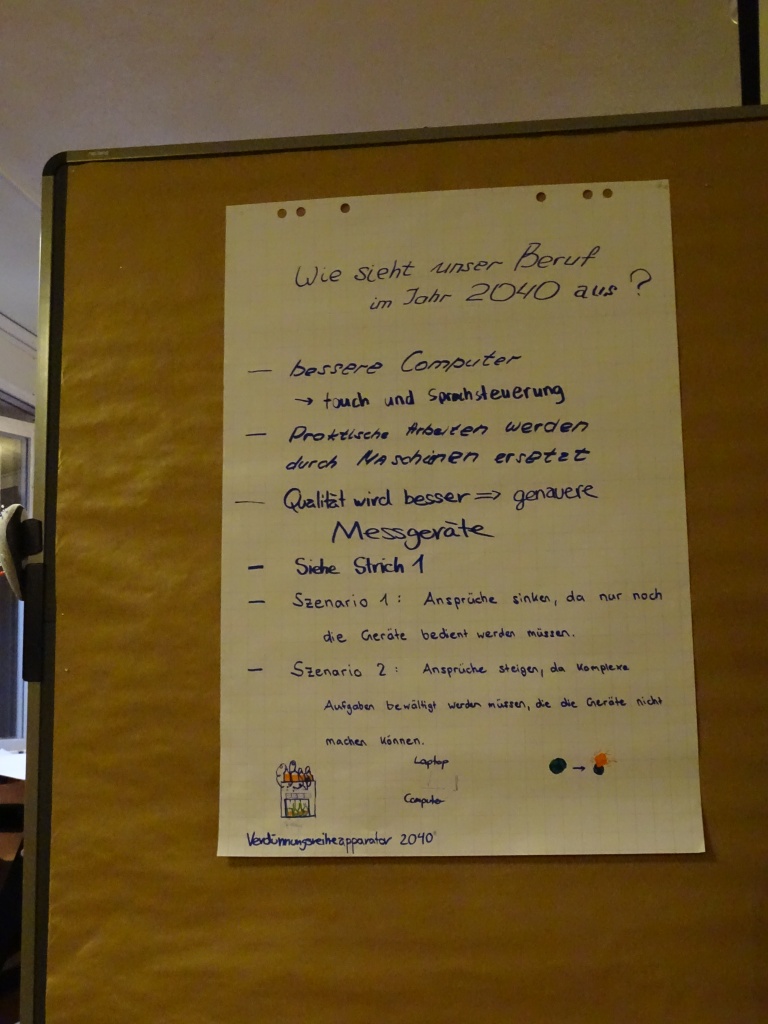 Wie sieht unser Beruf
im Jahr 2040 aus?
— bessere Computer
→ touch und Sprachsteuerung
— Praktische Arbeiten werden
durch Maschinen ersetzt
— Qualität wird besser ⇒ genauere
Messgeräte
— Siehe Strich 1
— Szenario 1: Ansprüche sinken, da nur noch
die Geräte bedient werden müssen.
— Szenario 2: Ansprüche steigen, da komplexe
Aufgaben bewältigt werden müssen, die die Geräte nicht
machen können.
Laptop
Computer
Verdünnungsreiheapparator 2040